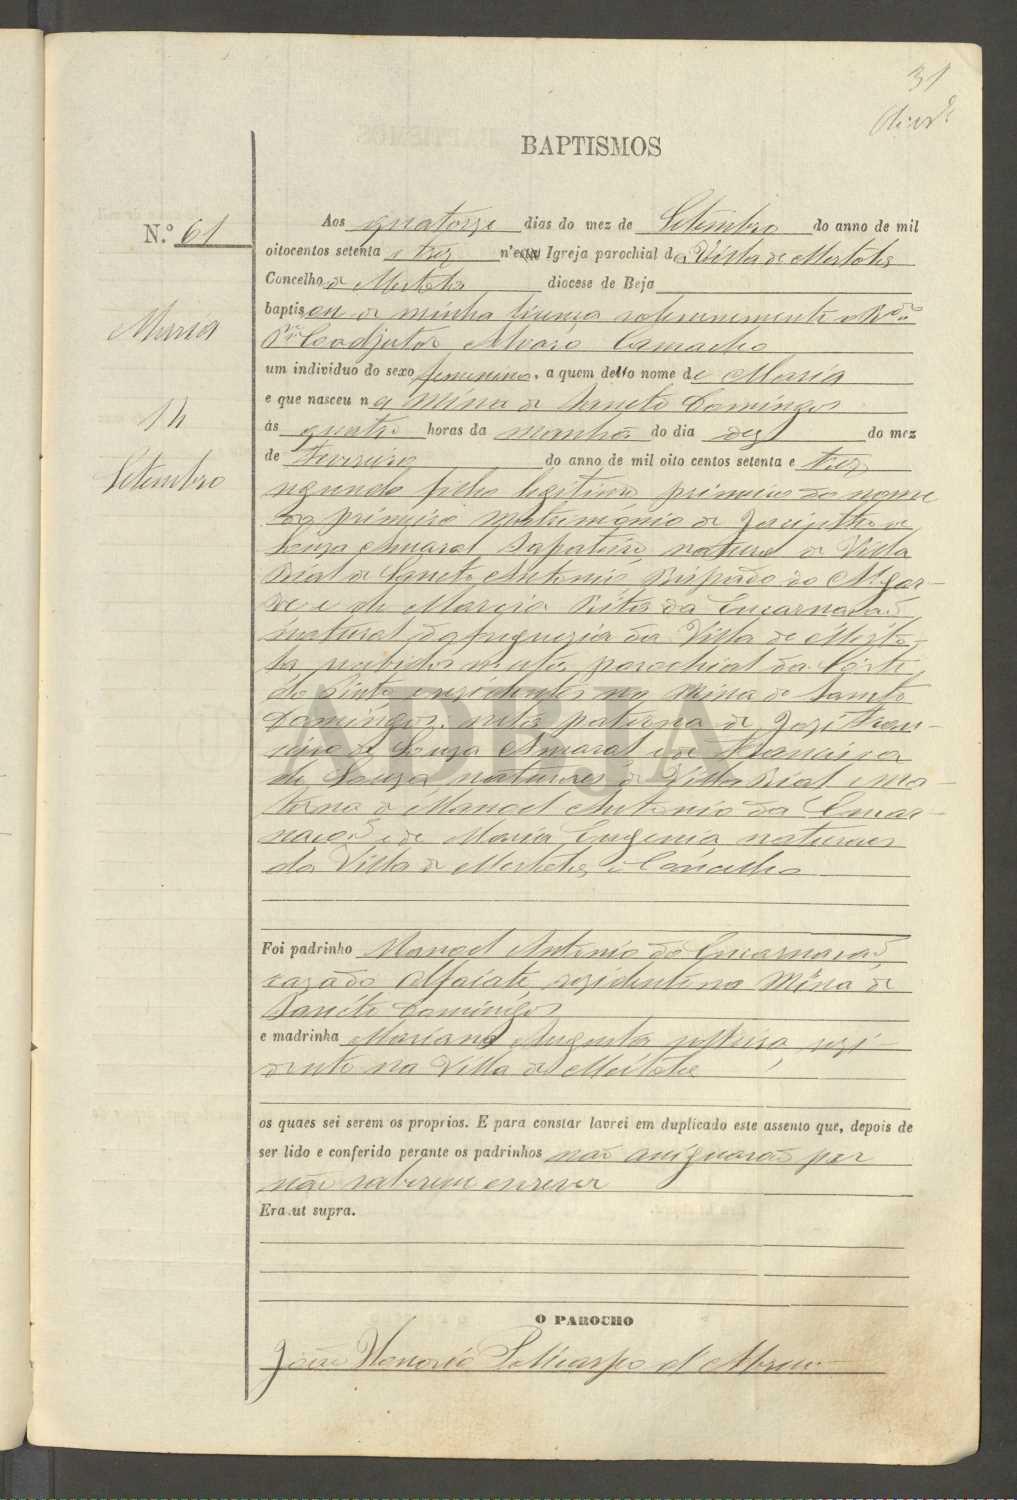 31
BAPTISMOS
N.º 61
Aos quatorze dias do mez de Setembro do anno de mil
oitocentos setenta e trez n'esta Igreja parochial da Villa de Mertola
Concelho de Mertola diocese de Beja
baptisou de minha licença solemnemente o Rdo
Pe Coadjutor Alvaro Camacho
Maria
um individuo do sexo femenino, a quem dello nome de Maria
e que nasceu na Mina de Sancto Domingos
14
ás quatro horas da manhã do dia dez do mez
Setembro
de Fevereiro do anno de mil oito centos setenta e trez
segundo filho legitimo primeiro do nome
do primeiro matrimónio de Jacintho de
Souza Amaral, Sapateiro, natural de Villa
Rial de Sancto Antonio, Bispado do Algar-
ve e de Maria Rita da Encarnacaõ
natural da freguezia da Villa de Merto-
la recebidos na parochial da Corte
do Pinto e rezidentes na Mina de Sancto
Domingos, neta paterna de Jozé
de Souza Amaral e de Francisca
de Souza naturaes de Villa Rial e ma-
terna de Manoel Antonio da Encar-
nacaõ e de Maria Eugenia naturaes
da Villa de Mertola e Concelho
Foi padrinho Manoel Antonio da Encarnacaõ,
cazado Alfaiate, rezidente na Mina de
Sancto Domingos
e madrinha Mariana Augusta solteira, rezi-
dente na Villa de Mertola
os quaes sei serem os proprios. E para constar lavrei em duplicado este assento que, depois de
ser lido e conferido perante os padrinhos naõ asignaraõ por
não saberem escrever
Era ut supra.
O PAROCHO
João Honorio Policarpo d'Abreu
ADBJA